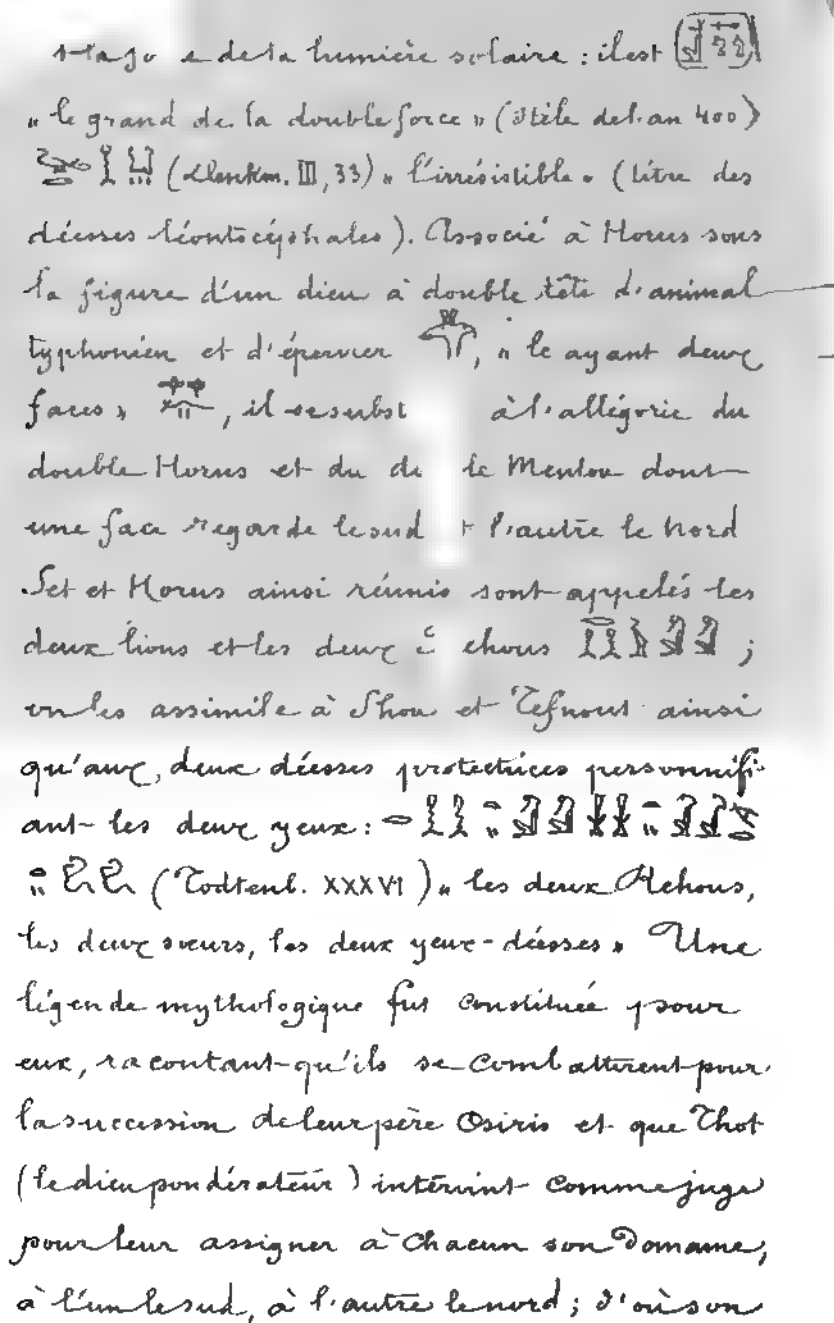 de la lumière solaire : il est
« le grand de la double force » (Stèle de l'an 400)
(Denkm. III, 33) « l'irrésistible » (titre des
déesses léontocéphales). Associé à Horus sous
la figure d'un dieu à double tête d'animal
typhonien et d'épervier , « le ayant deux
faces » , il se subst à l'allégorie du
double Horus et du do le Mentou dont
une face regarde le sud t l'autre le nord
Set et Horus ainsi réunis sont appelés les
deux lions et les deux ehous ;
on les assimile à Shou et Tefnout ainsi
qu'aux, deux déesses protectrices personnifi-
ant les deux yeux :
(Todtenb. XXXVI) « les deux Rehous,
les deux sœurs, les deux yeux-déesses » Une
légende mythologique fut constituée pour
eux, racontant qu'ils se combattirent pour
la succession de leur père Osiris et que Thot
(le dieu pondérateur) intervint comme juge
pour leur assigner à chacun son Domaine,
à l'un le sud, à l'autre le nord ; d'où son